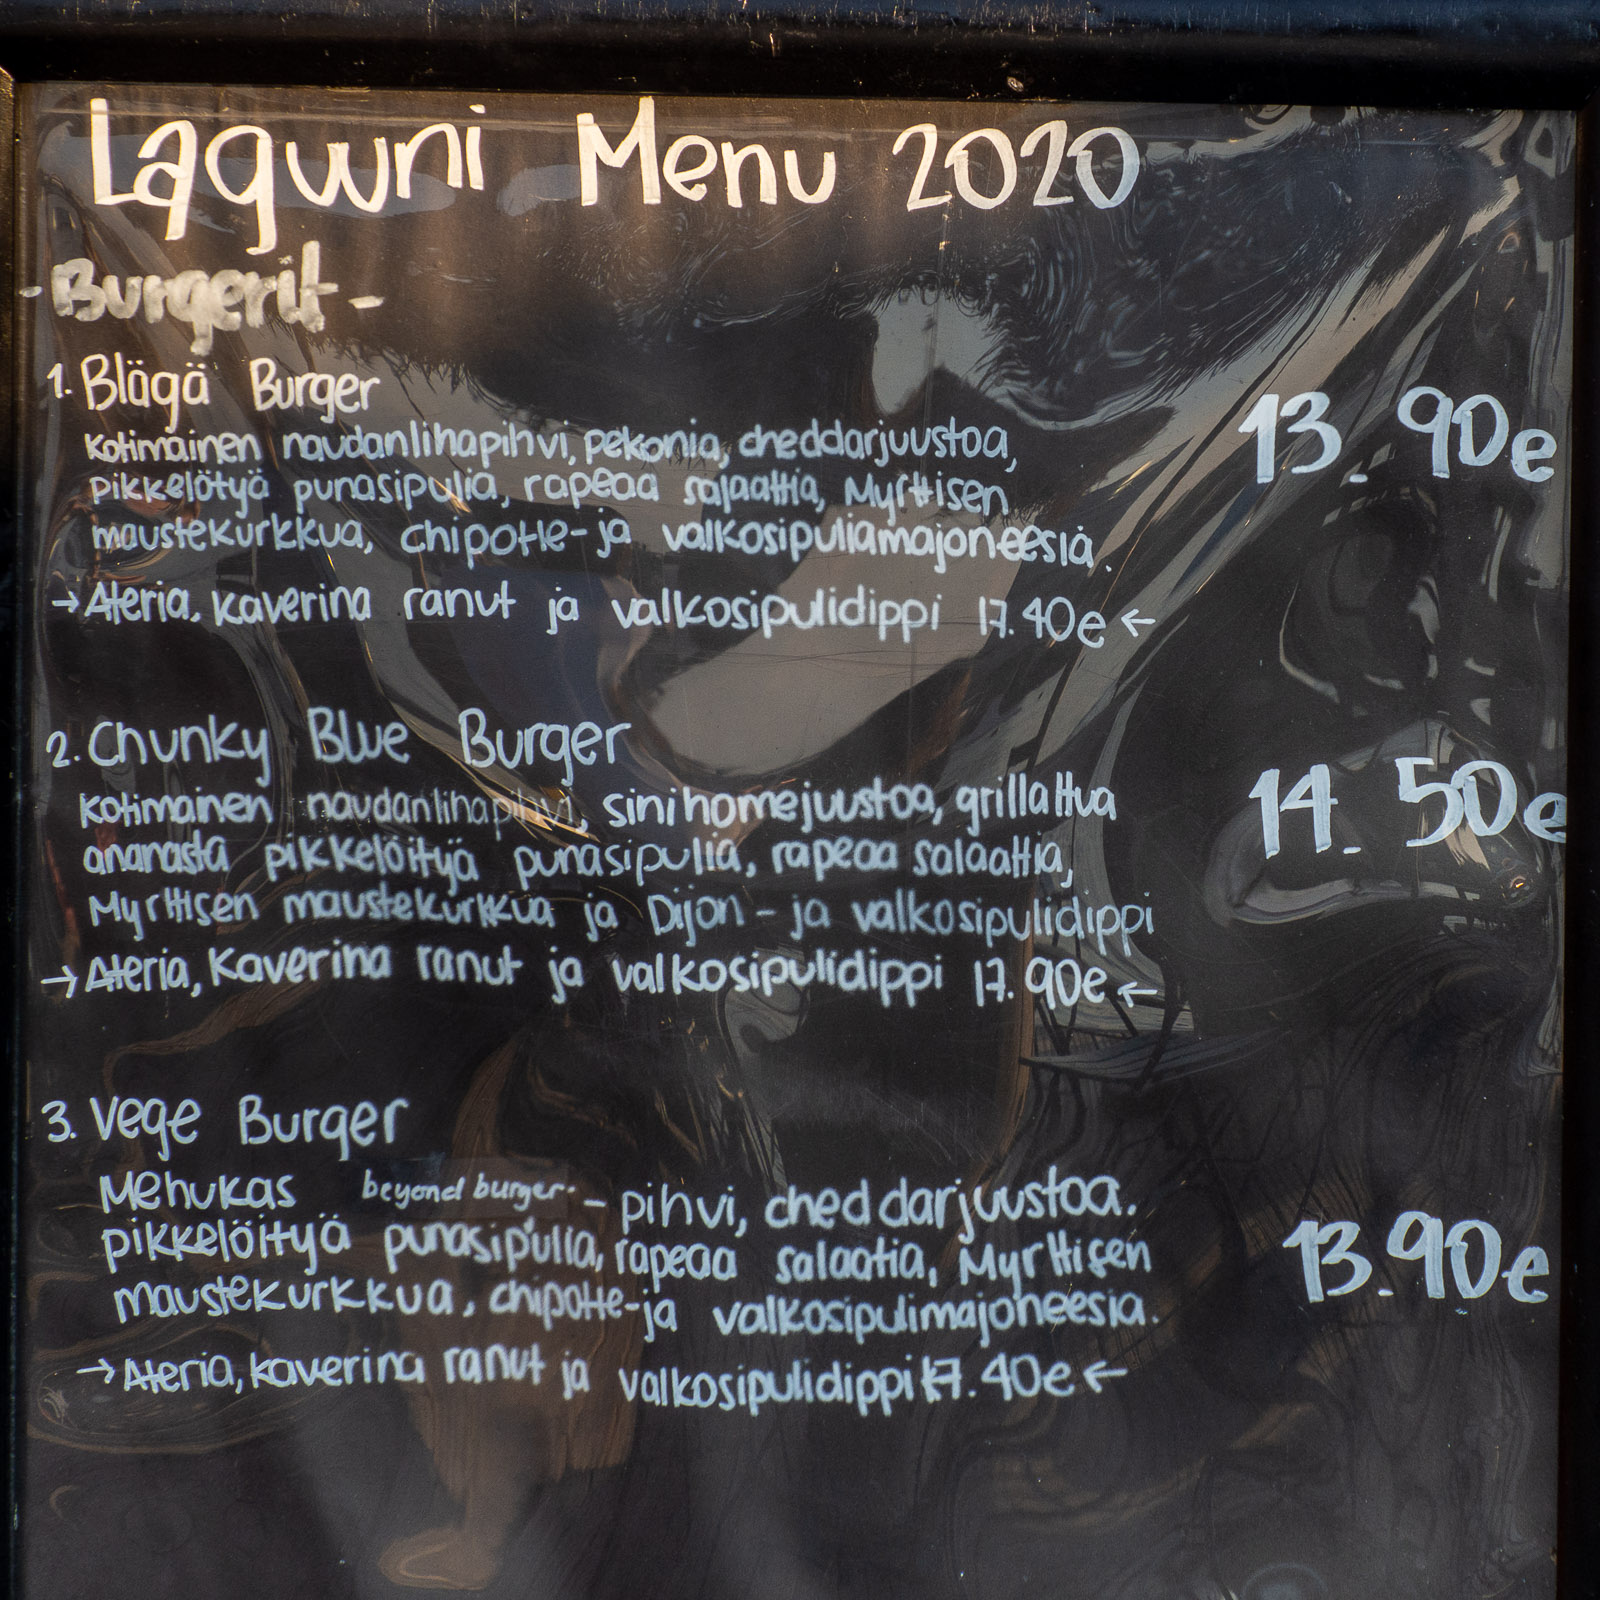 Laguuni Menu 2020
- Burgerit -
1. Blägä Burger
13.90e
kotimainen naudanlihapihvi, pekonia, cheddarjuustoa,
pikkelötyä punasipulia, rapeaa salaattia, Myrttisen
maustekurkkua, chipotle- ja valkosipuliamajoneesia.
→ Ateria, kaverina ranut ja valkosipulidippi 17.40e ←
2. Chunky Blue Burger
14.50e
kotimainen naudanlihapihvi, sinihomejuustoa, grillattua
ananasta pikkelöityä punasipulia, rapeaa salaattia,
Myrttisen maustekurkkua ja Dijon- ja valkosipulidippi
→ Ateria, Kaverina ranut ja valkosipulidippi 17.90e ←
3. Vege Burger
Mehukas beyond burger - pihvi, cheddarjuustoa.
pikkelöityä punasipulia, rapeaa salaatia, Myrttisen
13.90e
maustekurkkua, chipotle-ja valkosipulimajoneesia.
→ Ateria, kaverina ranut ja valkosipulidippi 17.40e ←